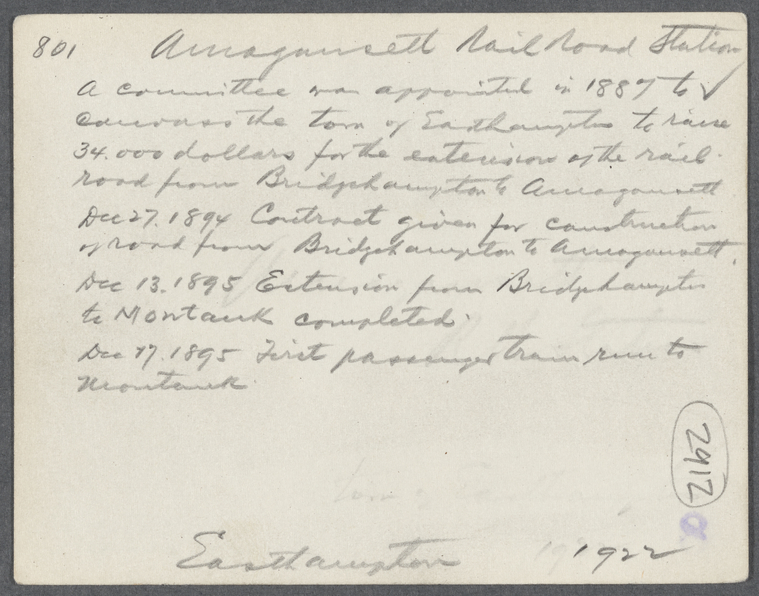 801 Amagansett Rail Road Station
A committee was appointed in 1887 to ✓
canvass the town of Easthampton to raise
34.000 dollars for the extension of the rail-
road from Bridgehampton to Amagansett
Dec 27. 1894 Contract given for construction
of road from Bridgehampton to Amagansett.
Dec 13. 1895 Extension from Bridgehampton
to Montauk completed.
Dec 17. 1895 First passenger train run to
Montauk
2912
Easthampton 1922